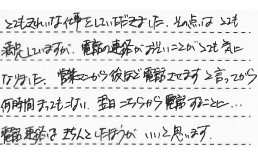 とてもきれいな仕事をしていただきました。その点はとても
満足していますが、電話の連絡が遅いことがとても気に
なりました。営業マンから後ほど電話させますと言ってから
何時間まってもこない。翌日こちらから電話することに…
電話連絡はきちんとしたほうがいいと思います。